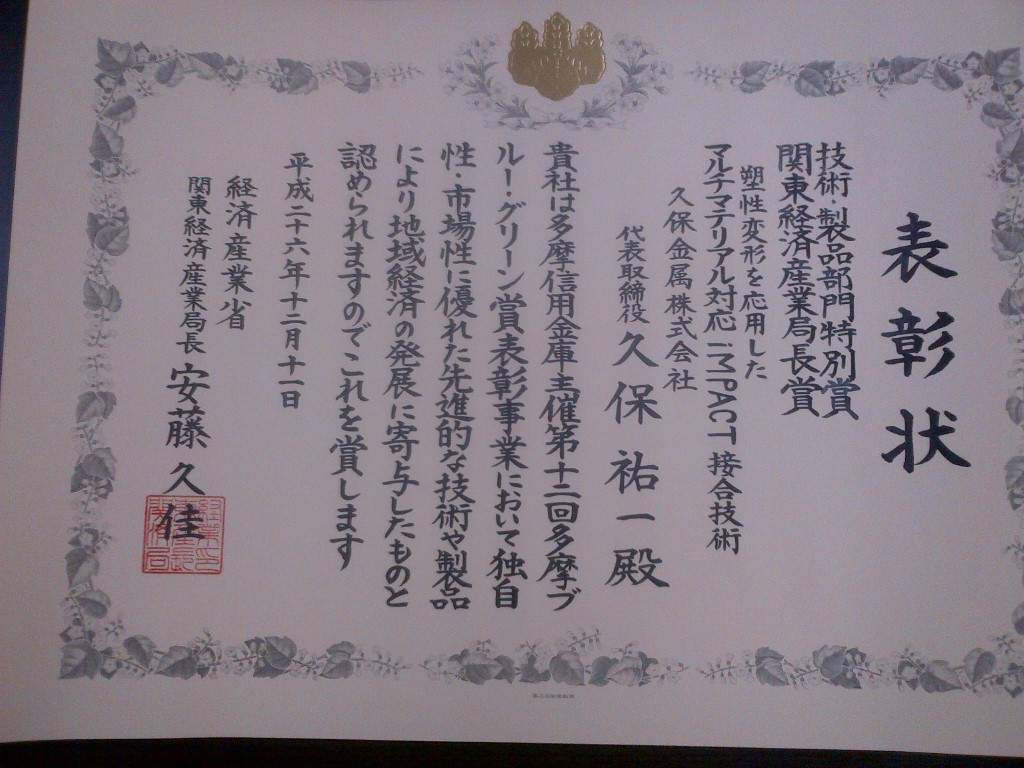 表彰状
技術・製品部門特別賞
関東経済産業局長賞
塑性変形を応用した
マルチマテリアル対応iMPACT接合技術
久保金属株式会社
代表取締役 久保祐一殿
貴社は多摩信用金庫主催第十二回多摩ブ
ルー・グリーン賞表彰事業において独自
性・市場性に優れた先進的な技術や製品
により地域経済の発展に寄与したものと
認められますのでこれを賞します
平成二十六年十二月十一日
経済産業省
関東経済産業局長 安藤久佳